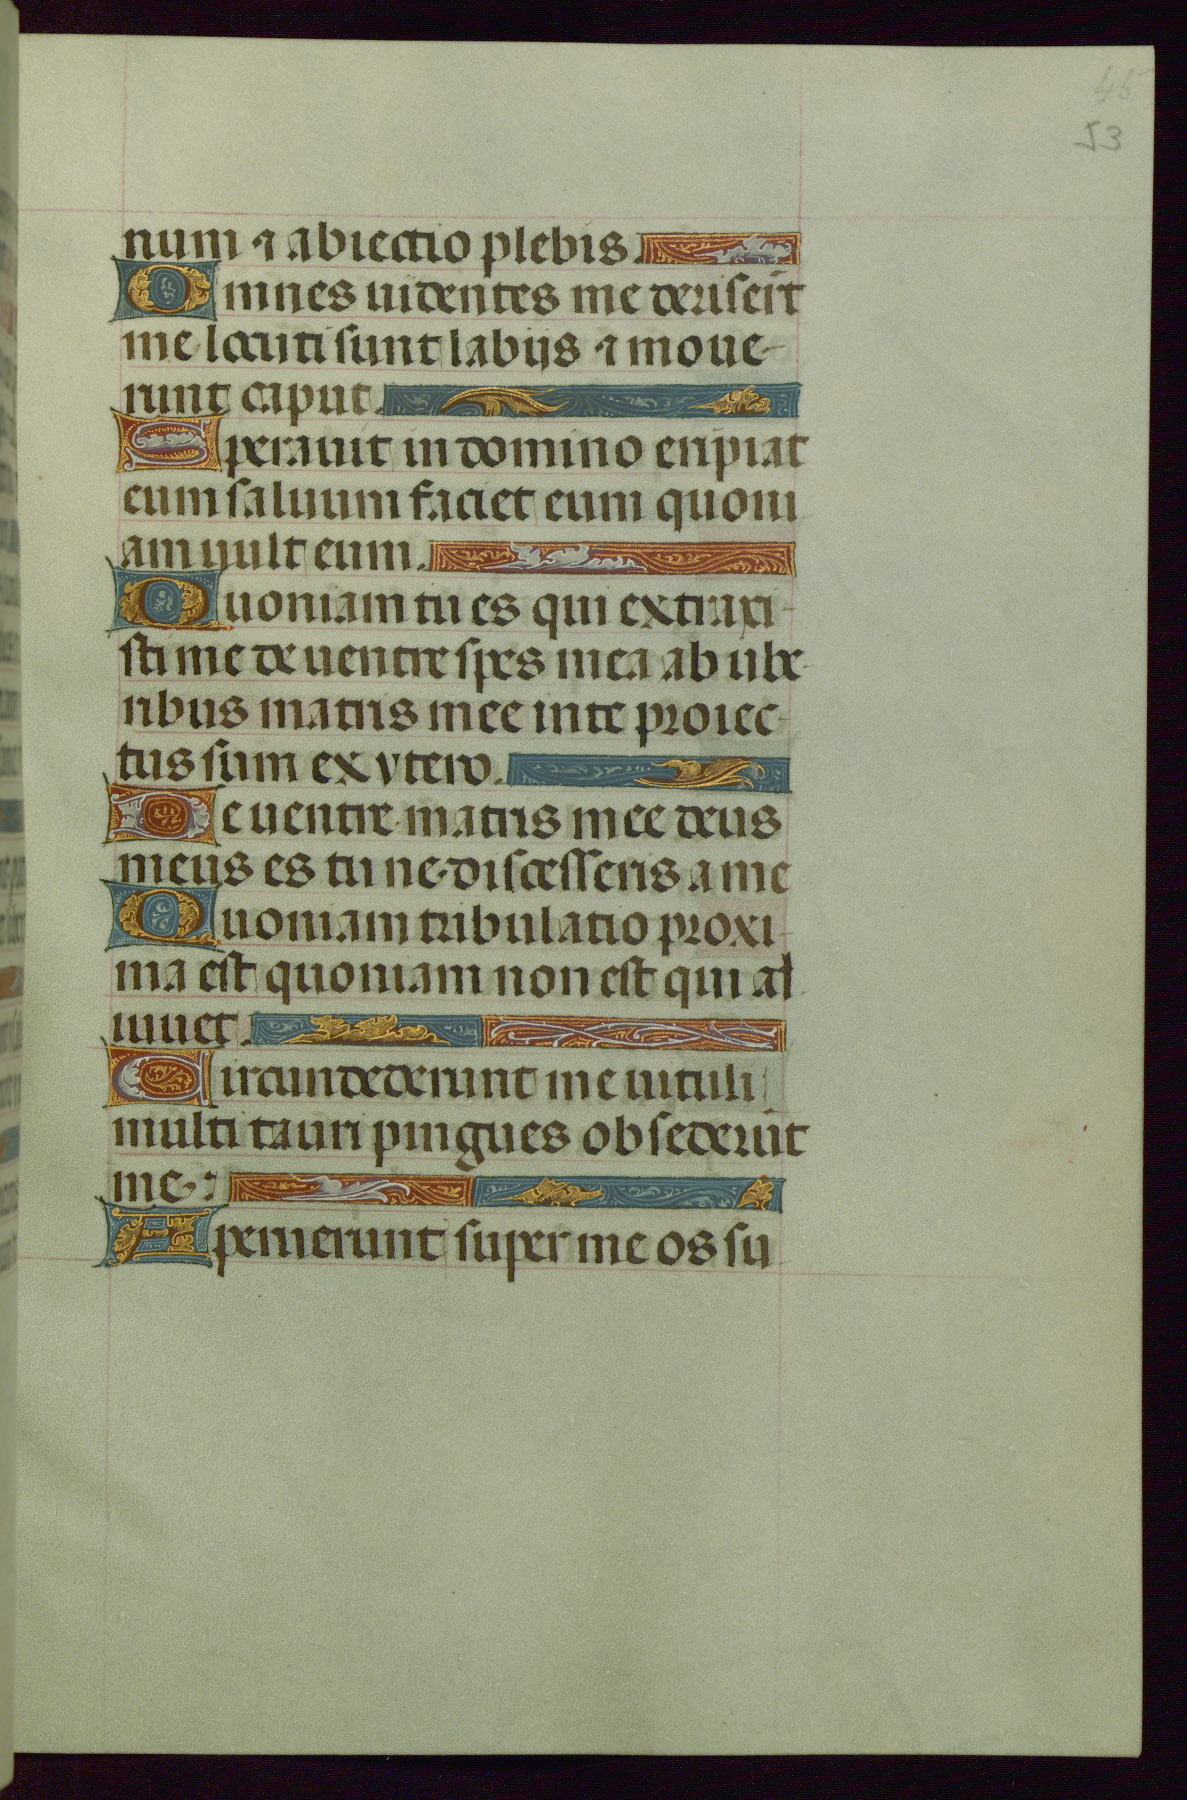 45
53
num ⁊ abiectio plebis.
Omnes uidentes me deriser̄t
me locuti sunt labijs ⁊ moue-
runt caput.
Sperauit in domino eripiat
eum saluum faciet eum quoni
am uult eum.
Quoniam tu es qui extraxi-
sti me de uentre spes mea ab ube-
ribus matris mee in te proiec-
tus sum ex vtero.
De uentre matris mee deus
meus es tu ne discesseris a me
Quoniam tribulatio proxi-
ma est quoniam non est qui ad
iuuet.
Circundederunt me uituli
multi tauri pingues obsederūt
me:
Aperuerunt super me os su